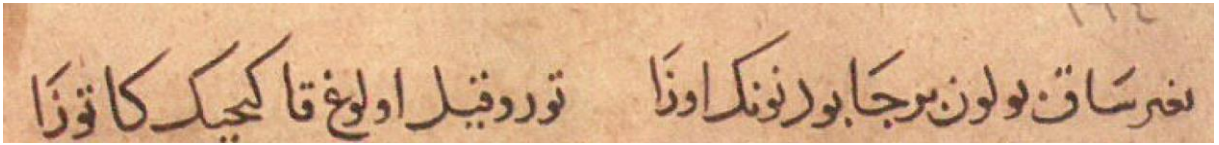 بغرسَاق بولون برجَا بودنونك اوزَا تورو قيل اولوغ قا كجيك كا توزَا